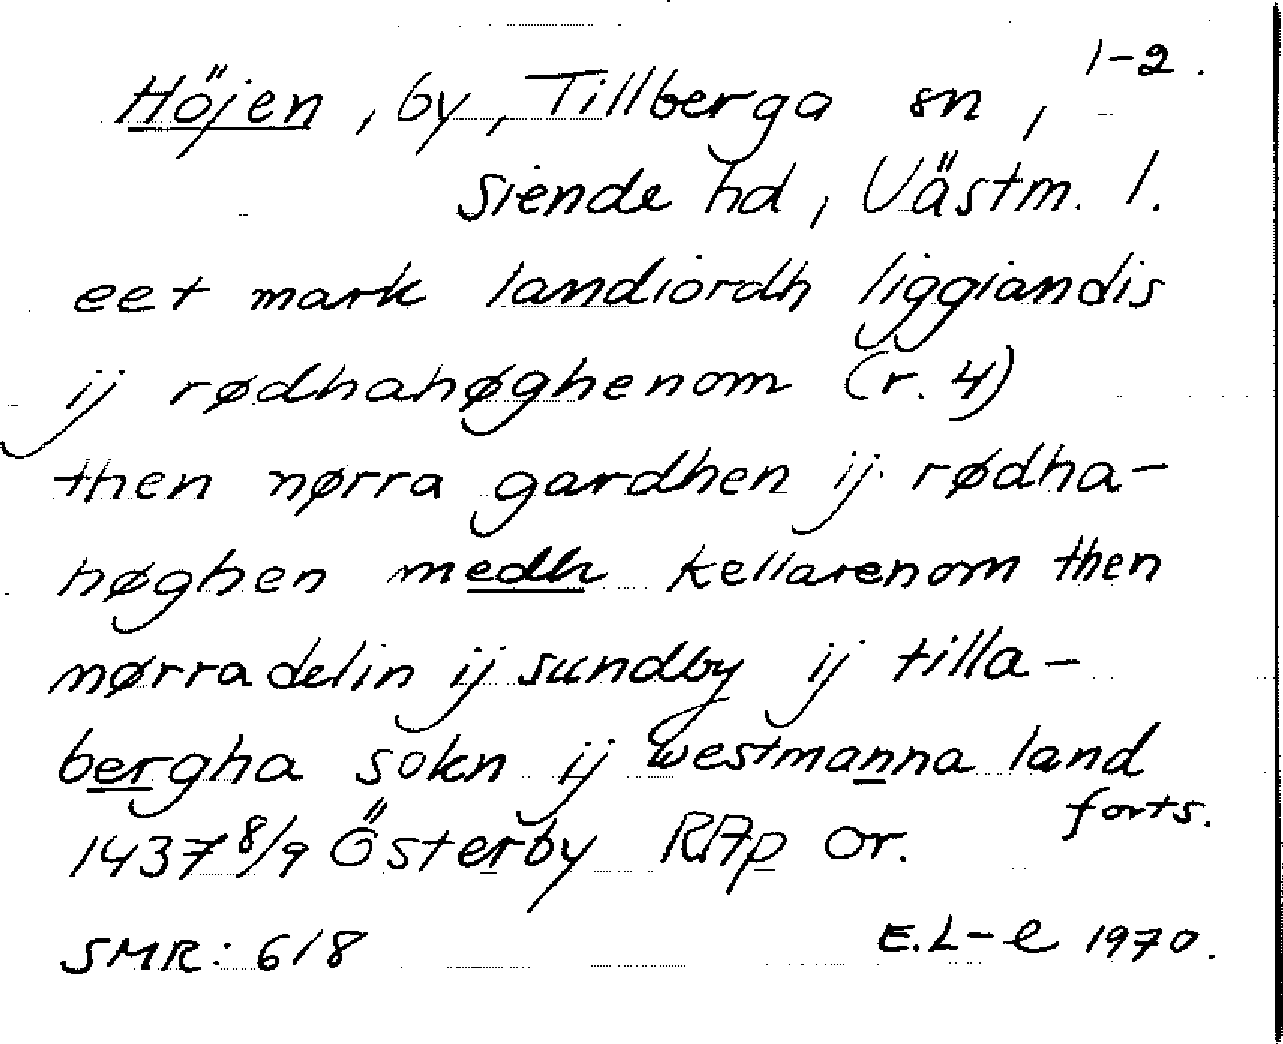 1-2.
Höjen, by, Tillberga sn,
Siende hd, Västm. l.
eet mark landiordh liggiandis
ij rødhahøghenom (r. 4)
then nørra gardhen ij rødha-
høghen medh kellarenom then
nørra delin ij sundby ij tilla-
bergha sokn ij westmanna land
forts.
1437 8/9 Österby RAp or.
SMR: 618 E.L-e 1970.